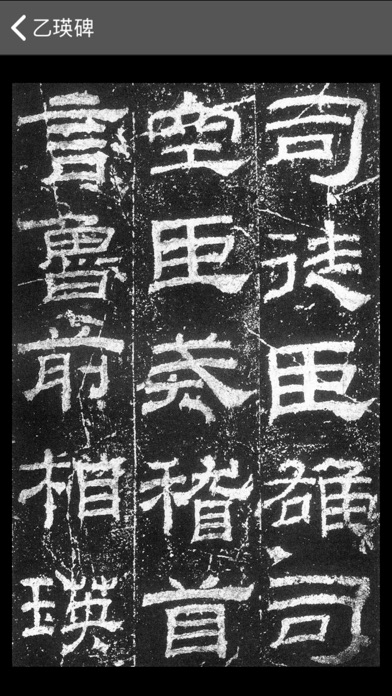 乙瑛碑
司徒臣雄司
空臣戒稽首
言魯前相瑛